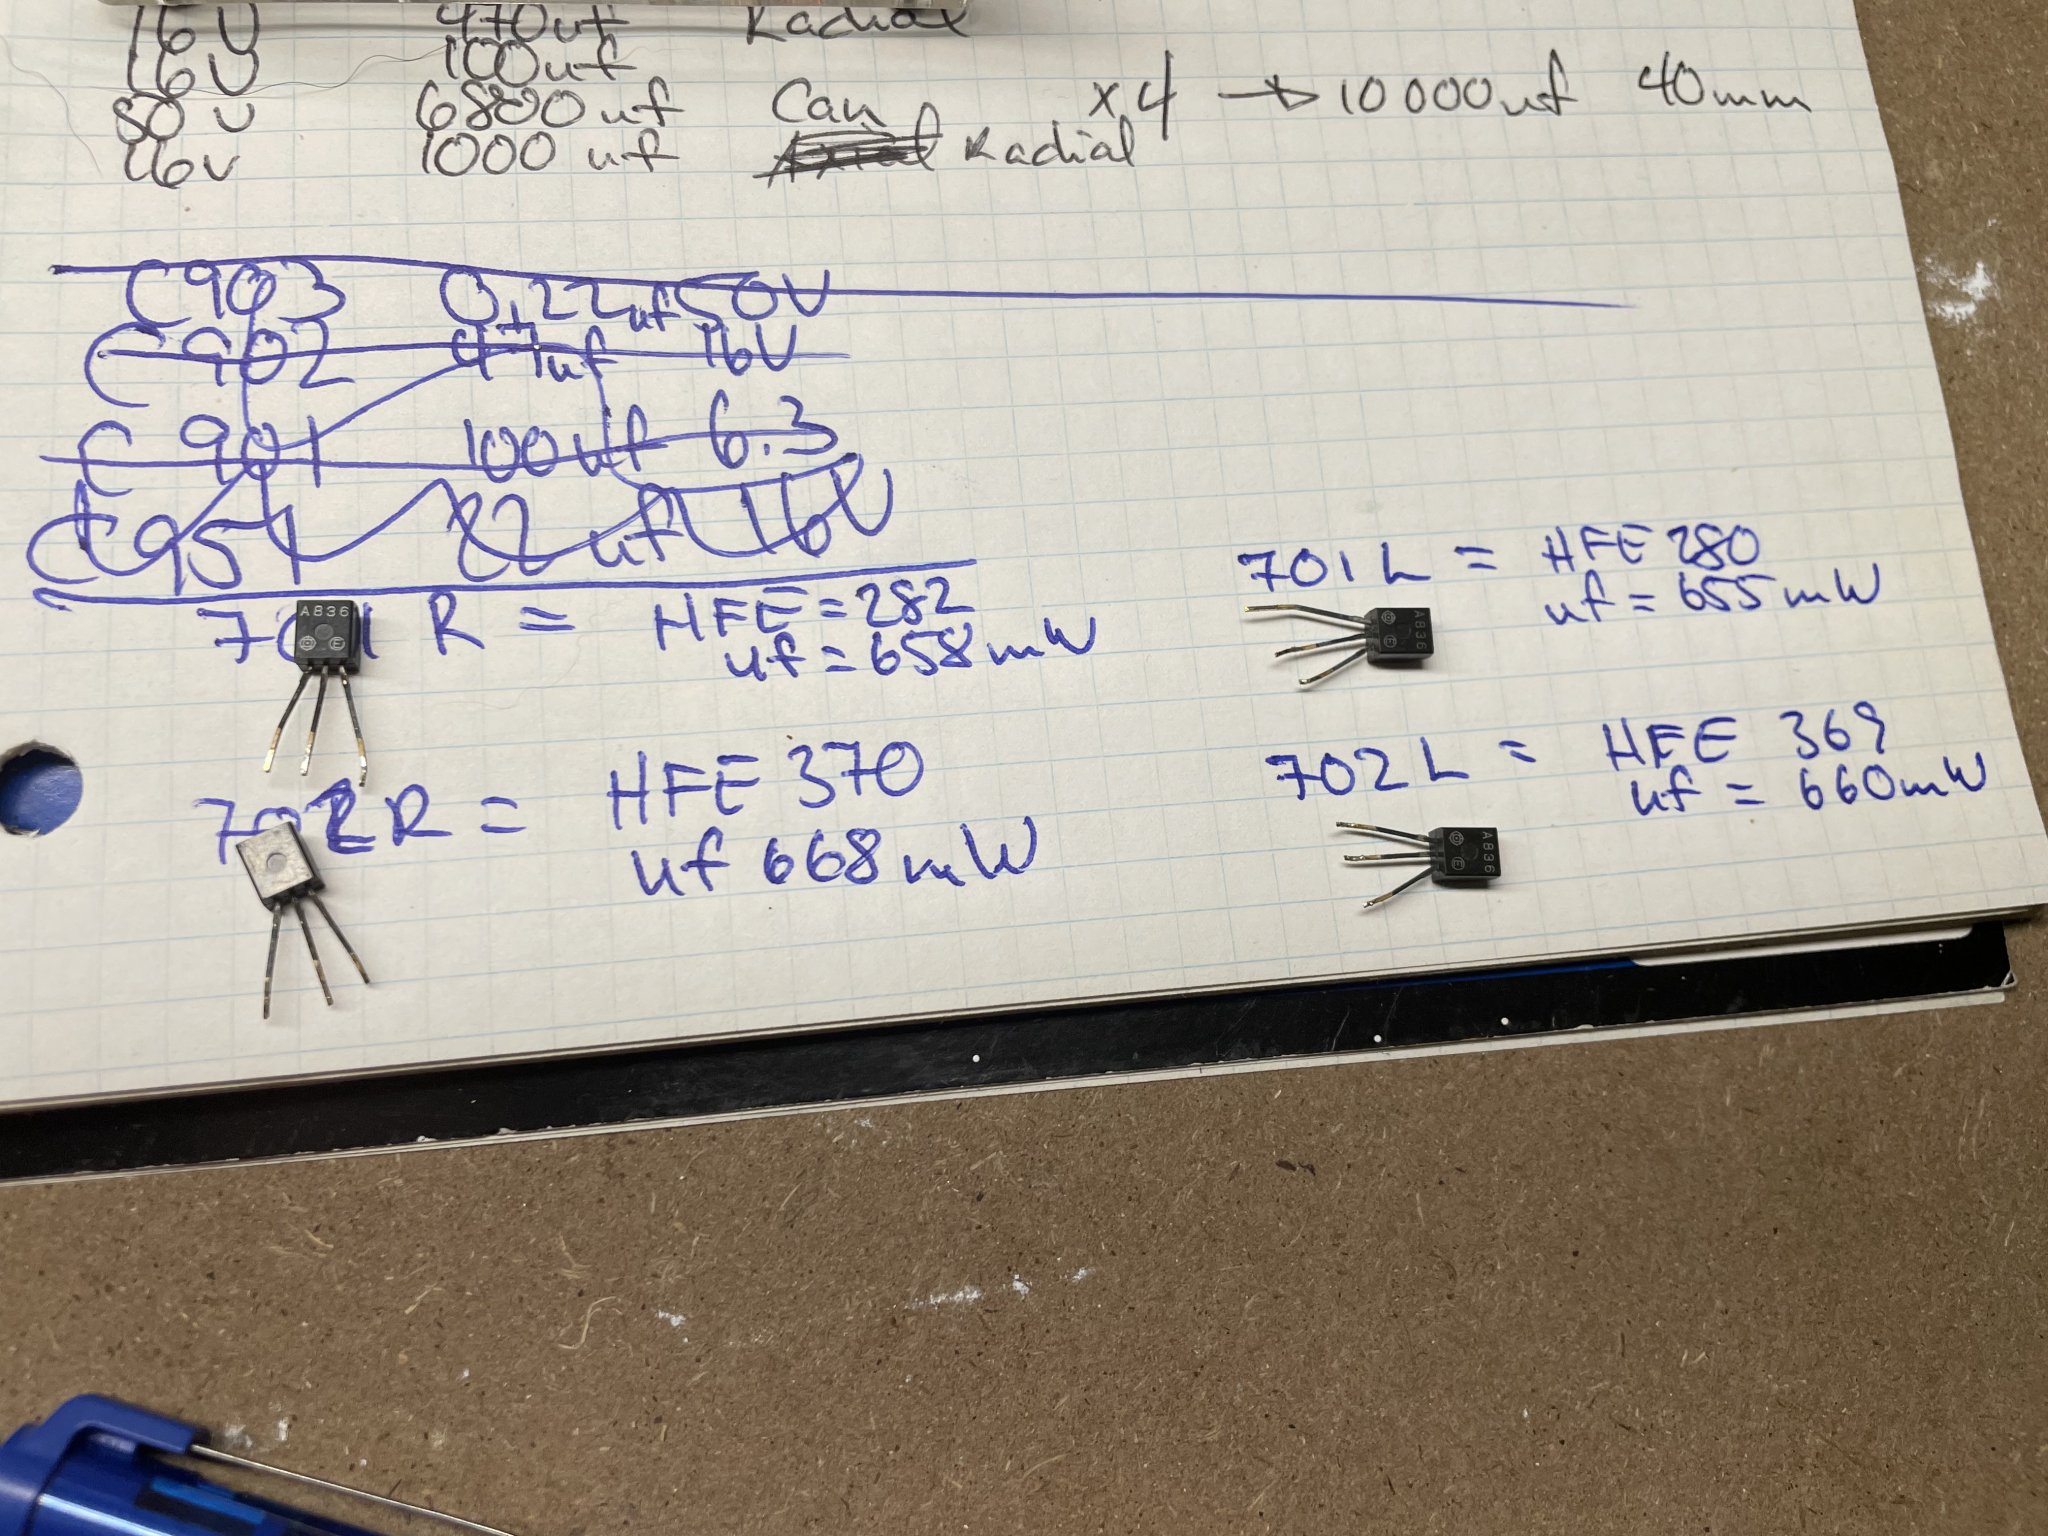 16V 470uf Radial
16V 100uf
80V 6800uf Can x4 → 10000uf 40mm
16v 1000uf Radial
C903 0,22uf 50V
C902 47uf 16V
C901 100uf 6.3
C951 22uf 16V
701 R = HFE = 282
uf = 658mW
A836
E
701 L = HFE 280
uf = 655mW
A836
E
702R = HFE 370
uf 668mW
702L = HFE 369
uf = 660mW
A836
E